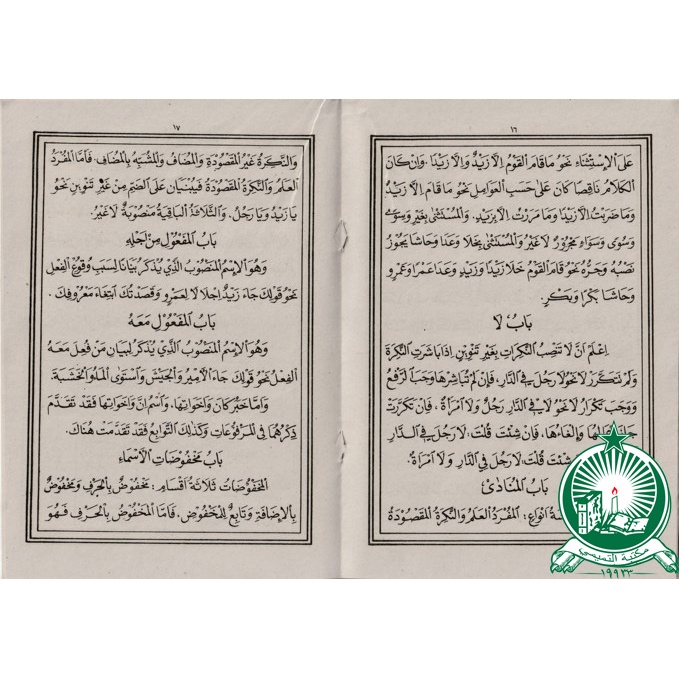 ١٦
عَلَى الْإِسْتِثْنَاءِ نَحْوُ مَا قَامَ الْقَوْمُ إِلَّا زَيْدٌ وَإِلَّا زَيْدًا. وَإِنْ كَانَ
الْكَلَامُ نَاقِصًا كَانَ عَلَى حَسَبِ الْعَوَامِلِ نَحْوُ مَا قَامَ إِلَّا زَيْدٌ
وَمَا ضَرَبْتُ إِلَّا زَيْدًا وَمَا مَرَرْتُ إِلَّا بِزَيْدٍ. وَالْمُسْتَثْنَى بِغَيْرٍ وَسِوًى
وَسُوًى وَسَوَاءٍ مَجْرُورٌ لَا غَيْرُ وَالْمُسْتَثْنَى بِخَلَا وَعَدَا وَحَاشَا يَجُوزُ
نَصْبُهُ وَجَرُّهُ نَحْوُ قَامَ الْقَوْمُ خَلَا زَيْدًا وَزَيْدٍ وَعَدَا عَمْرًا وَعَمْرٍو
وَحَاشَا بَكْرًا وَبَكْرٍ.
بَابُ لَا
اِعْلَمْ أَنَّ لَا تَنْصِبُ النَّكِرَاتِ بِغَيْرِ تَنْوِينٍ إِذَا بَاشَرَتِ النَّكِرَةَ
وَلَمْ تَتَكَرَّرْ لَا نَحْوُ لَا رَجُلَ فِي الدَّارِ، فَإِنْ لَمْ تُبَاشِرْهَا وَجَبَ الرَّفْعُ
وَوَجَبَ تَكْرَارُ لَا نَحْوُ لَا فِي الدَّارِ رَجُلٌ وَلَا امْرَأَةٌ، فَإِنْ تَكَرَّرَتْ
جَازَ إِعْمَالُهَا وَإِلْغَاءُهَا، فَإِنْ شِئْتَ قُلْتَ: لَا رَجُلَ فِي الدَّارِ
شِئْتَ قُلْتَ: لَا رَجُلٌ فِي الدَّارِ وَلَا امْرَأَةٌ.
بَابُ الْمُنَادَى
أَنْوَاعٍ: الْمُفْرَدُ الْعَلَمُ وَالنَّكِرَةُ الْمَقْصُودَةُ
١٧
وَالنَّكِرَةُ غَيْرُ الْمَقْصُودَةِ وَالْمُضَافُ وَالْمُشَبَّهُ بِالْمُضَافِ. فَأَمَّا الْمُفْرَدُ
الْعَلَمُ وَالنَّكِرَةُ الْمَقْصُودَةُ فَيُبْنَيَانِ عَلَى الضَّمِّ مِنْ غَيْرِ تَنْوِينٍ نَحْوُ
يَا زَيْدُ وَيَا رَجُلُ. وَالثَّلَاثَةُ الْبَاقِيَةُ مَنْصُوبَةٌ لَا غَيْرُ.
بَابُ الْمَفْعُولِ مِنْ أَجْلِهِ
وَهُوَ الْإِسْمُ الْمَنْصُوبُ الَّذِي يُذْكَرُ بَيَانًا لِسَبَبِ وُقُوعِ الْفِعْلِ
نَحْوُ قَوْلِكَ جَاءَ زَيْدٌ إِجْلَالًا لِعَمْرٍو وَقَصَدْتُكَ ابْتِغَاءَ مَعْرُوفِكَ.
بَابُ الْمَفْعُولِ مَعَهُ
وَهُوَ الْإِسْمُ الْمَنْصُوبُ الَّذِي يُذْكَرُ لِبَيَانِ مَنْ فُعِلَ مَعَهُ
الْفِعْلُ نَحْوُ قَوْلِكَ جَاءَ الْأَمِيرُ وَالْجَيْشَ وَاسْتَوَى الْمَاءُ وَالْخَشَبَةَ.
وَأَمَّا خَبَرُ كَانَ وَأَخَوَاتِهَا، وَاسْمُ إِنَّ وَأَخَوَاتِهَا فَقَدْ تَقَدَّمَ
ذِكْرُهُمَا فِي الْمَرْفُوعَاتِ وَكَذَلِكَ التَّوَابِعُ فَقَدْ تَقَدَّمَتْ هُنَاكَ.
بَابُ مَخْفُوضَاتِ الْأَسْمَاءِ
الْمَخْفُوضَاتُ ثَلَاثَةُ أَقْسَامٍ: مَخْفُوضٌ بِالْحَرْفِ وَمَخْفُوضٌ
بِالْإِضَافَةِ وَتَابِعٌ لِلْمَخْفُوضِ، فَأَمَّا الْمَخْفُوضُ بِالْحَرْفِ فَهُوَ
مكتبة